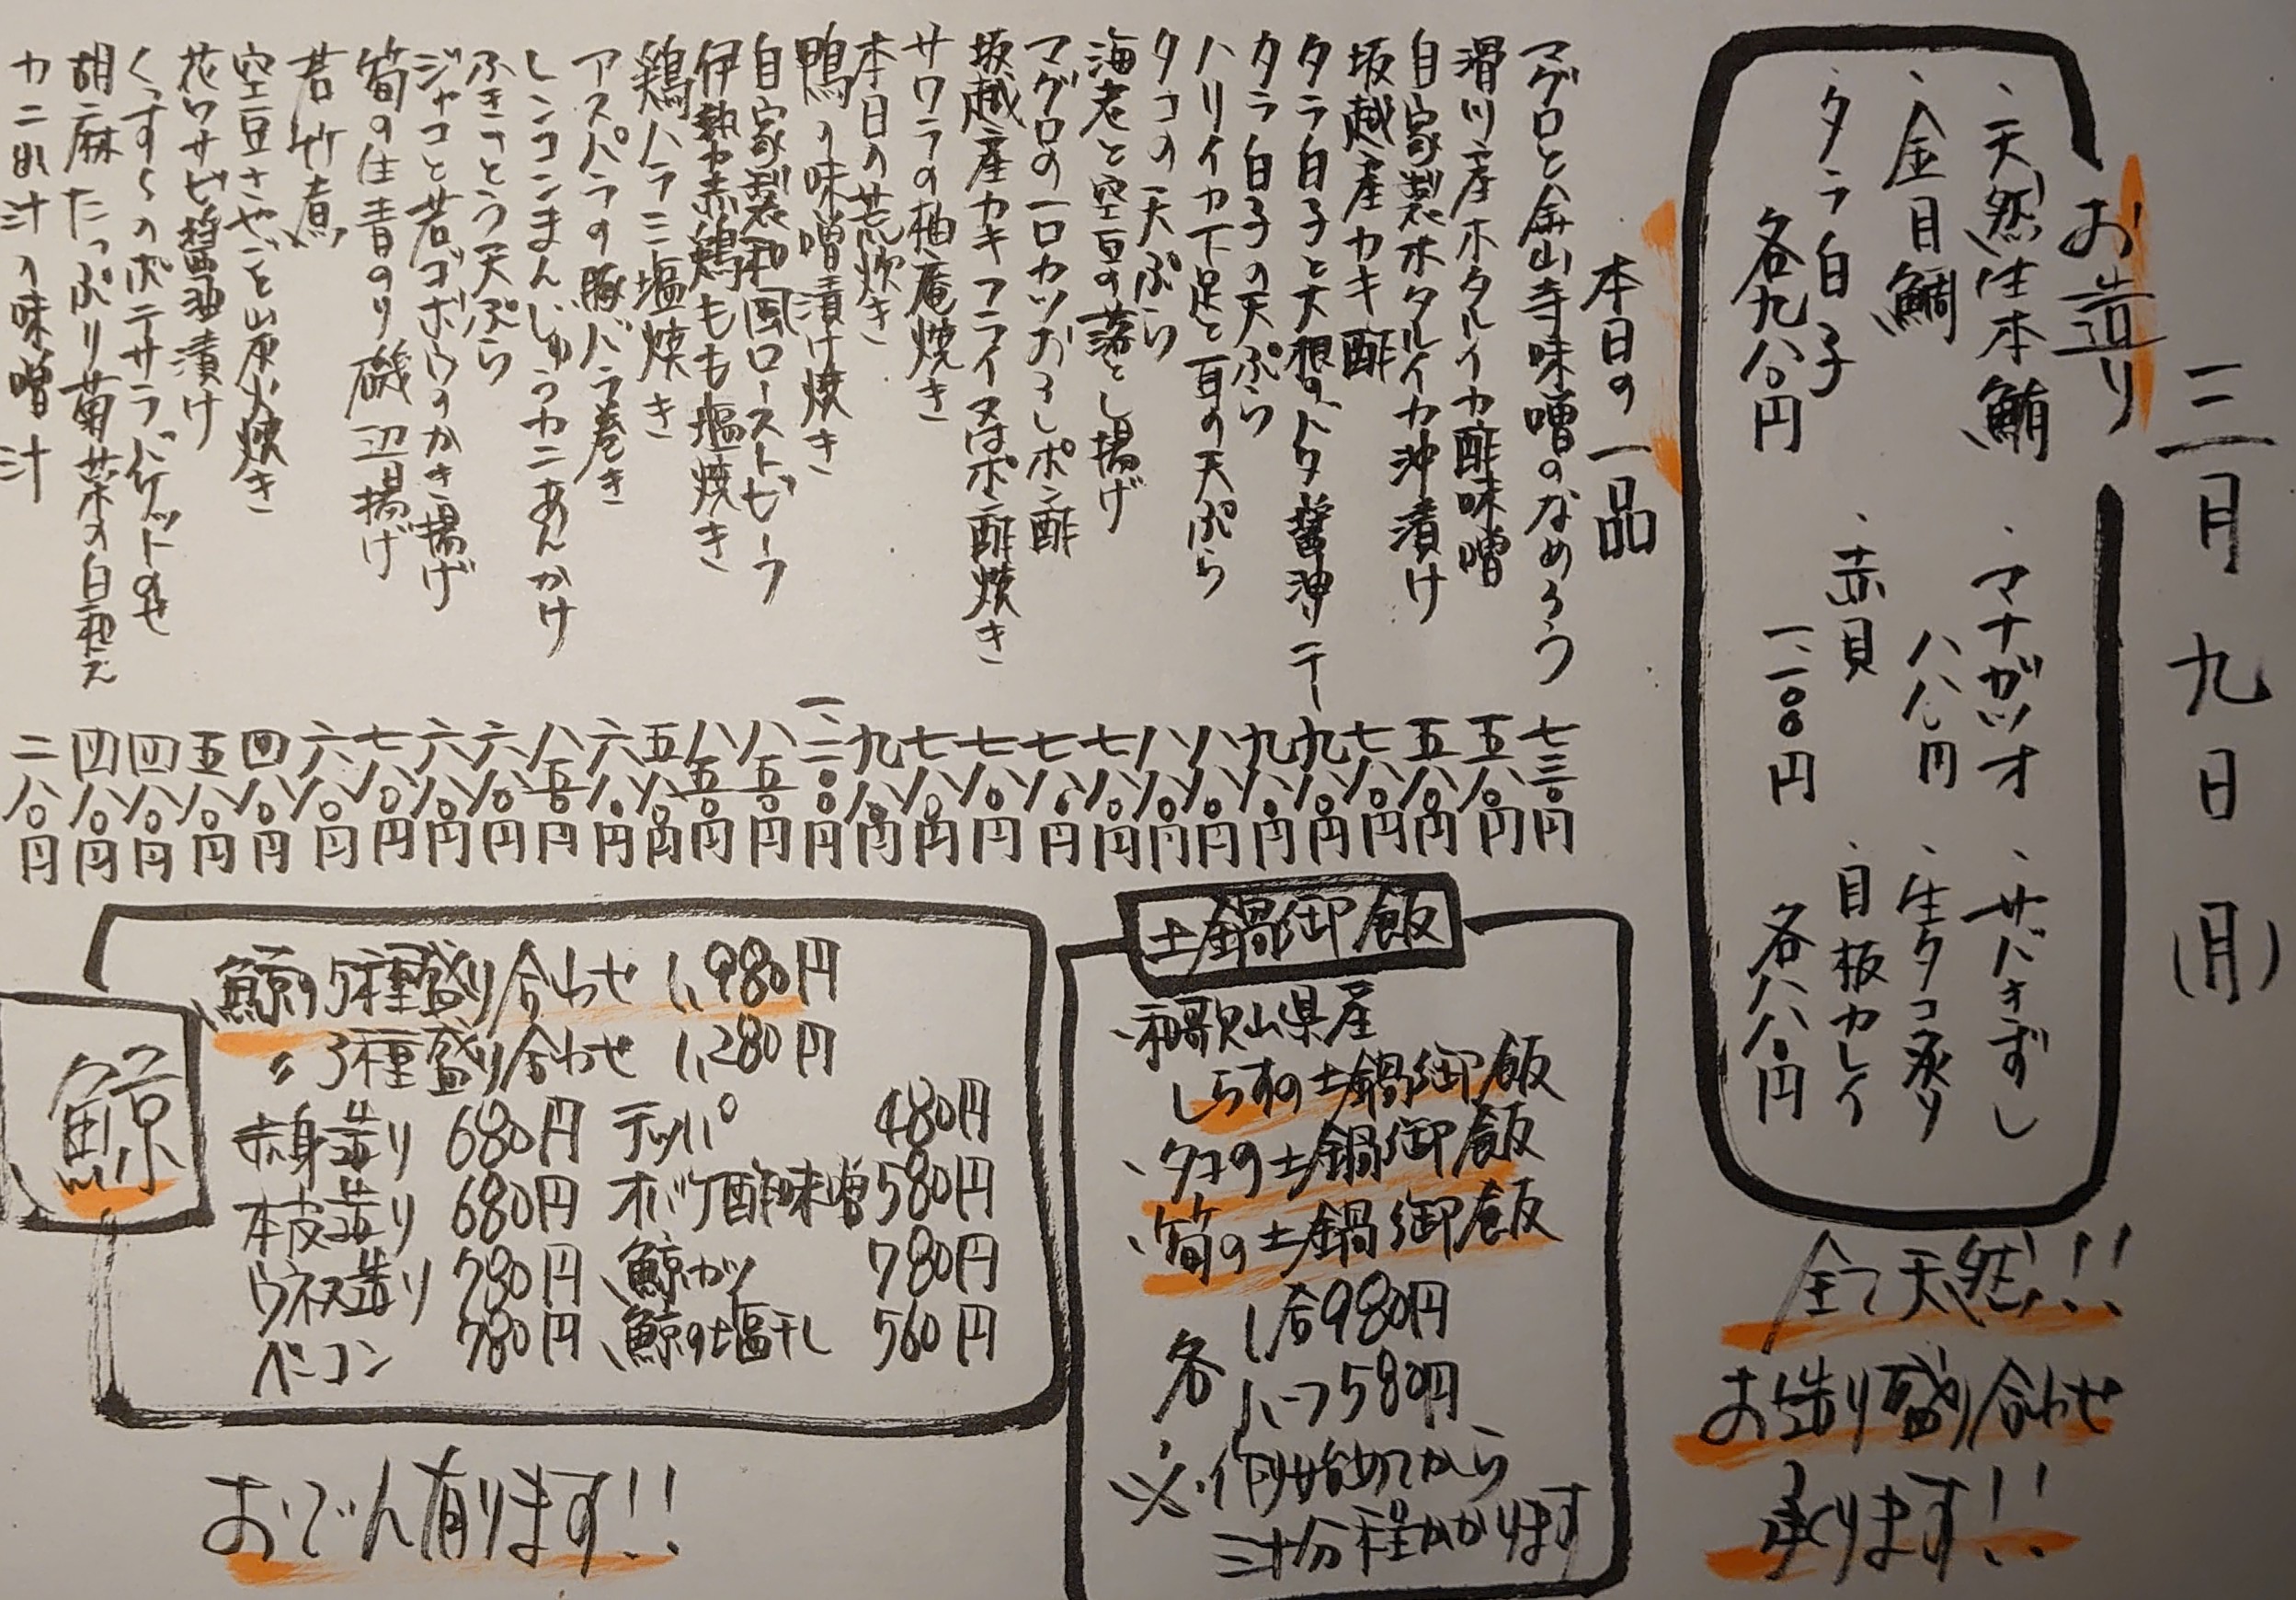 三月九日(月)
お造り
・天然生本鮪
・金目鯛
・タラ白子
各九八〇円
・マナガツオ
八八〇円
・赤貝
一、一〇〇円
・サバきずし
・生タコ炙り
・目板カレイ
各八八〇円
全て天然!!
お造り盛り合わせ
承ります!!
本日の一品
マグロと金山寺味噌のなめろう 七三〇円
滑川産ホタルイカ酢味噌 五八〇円
自家製ホタルイカ沖漬け 五八〇円
坂越産カキ酢 七八〇円
タラ白子と大根のバター醤油ソテー 九八〇円
タラ白子の天ぷら 九八〇円
ハリイカ下足と耳の天ぷら 八八〇円
タコの天ぷら 八八〇円
海老と空豆の落とし揚げ 七八〇円
マグロの一口カツおろしポン酢 七八〇円
坂越産カキフライ又はポン酢焼き 七八〇円
サワラの柚庵焼き 七八〇円
本日の荒炊き 九八〇円
鴨の味噌漬け焼き 一、二〇〇円
自家製和風ローストビーフ 八五〇円
伊勢赤鶏もも塩焼き 八五〇円
鶏ハラミ塩焼き 五八〇円
アスパラの豚バラ巻き 六八〇円
レンコンまんじゅうカニあんかけ 八五〇円
ふきのとう天ぷら 六八〇円
ジャコと若ゴボウのかき揚げ 六八〇円
筍の生青のり磯辺揚げ 七八〇円
若竹煮 六八〇円
空豆さやごと炭火焼き 四八〇円
花ワサビ醤油漬け 五八〇円
くんすもののポテサラバケットのせ 四八〇円
胡麻たっぷり菊菜の白和え 四八〇円
カニ出汁の味噌汁 二八〇円
土鍋御飯
・和歌山県産
しらすの土鍋御飯
・タコの土鍋御飯
・筍の土鍋御飯
各 1合980円
ハーフ580円
※作り始めてから
三十分程かかります
鯨
鯨の5種盛り合わせ 1,980円
〃 3種盛り合わせ 1,280円
赤身造り 680円
本皮造り 680円
ウネス造り 780円
ベーコン 780円
テッパ 480円
オバケ酢味噌 580円
鯨カツ 780円
鯨の塩干し 560円
おでん有ります!!